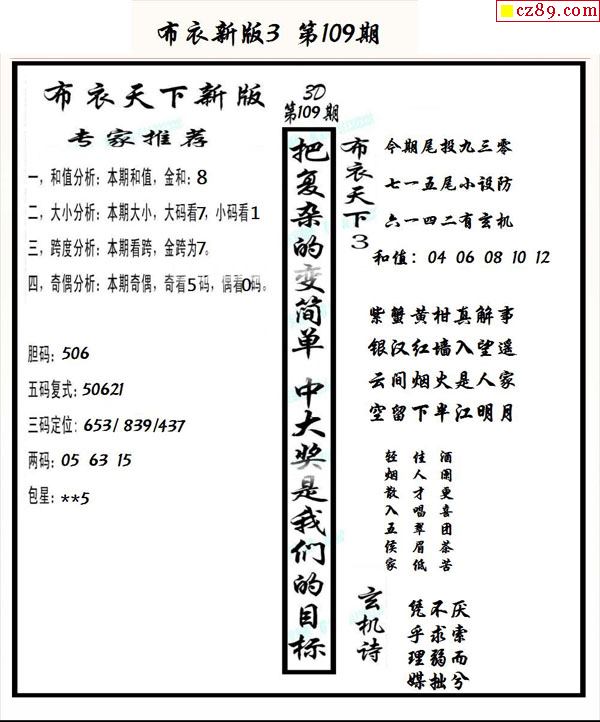 cz89.com
布衣新版3 第109期
布衣天下新版
专家推荐
一，和值分析：本期和值，金和：8
二，大小分析：本期大小，大码看7，小码看1
三，跨度分析：本期看跨，金跨为7。
四，奇偶分析：本期奇偶，奇看5码，偶看0码。
胆码：506
五码复式：50621
三码定位：653/839/437
两码：05 63 15
包星：**5
3D
第109期
把复杂的变简单 中大奖是我们的目标
布衣天下3
今期尾投九三零
七一五尾小设防
六一四二有玄机
和值：04 06 08 10 12
紫蟹黄柑真解事
银汉红墙入望遥
云间烟火是人家
空留下半江明月
酒阑更喜团茶苦
佳人才唱翠眉低
轻烟散入五侯家
玄机诗
厌索而兮
不求弱拙
凭乎理媒